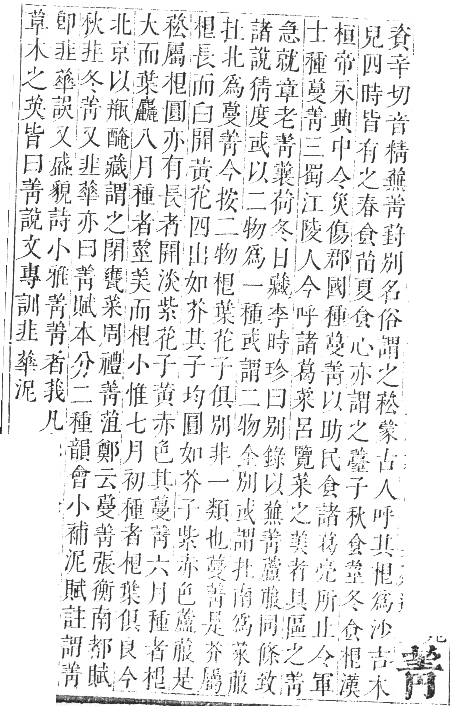 菁
資辛切音精蕪菁葑別名俗謂之菘蒙古人呼其根為沙吉木
兒四時皆有之春食苗夏食心亦謂之薹子秋食莖冬食根漢
桓帝永典中令災傷郡國種蔓菁以助民食諸葛亮所止令軍
士種蔓菁三蜀江陵人今呼諸葛菜呂覽菜之美者具區之菁
急就章老菁蘘荷冬日藏李時珍曰別錄以蕪菁蘆菔同條致
諸說猜度或以二物為一種或謂二物全別或謂在南為萊菔
在北為蔓菁今按二物根葉花子俱別非一類也蔓菁是芥屬
根長而白開黃花四出如芥其子均圓如芥子紫赤色蘆菔是
菘屬根圓亦有長者開淡紫花子黃赤色其蔓菁六月種者根
大而葉麤八月種者莖美而根小惟七月初種者根葉俱良今
北京以瓶醃藏謂之閉甕菜周禮菁菹鄭云蔓菁張衡南都賦
秋韭冬菁又韭華亦曰菁賦本分二種韻會小補泥賦註謂菁
卽韭華誤又盛貌詩小雅菁菁者莪凡
草木之英皆曰菁說文專訓韭華泥